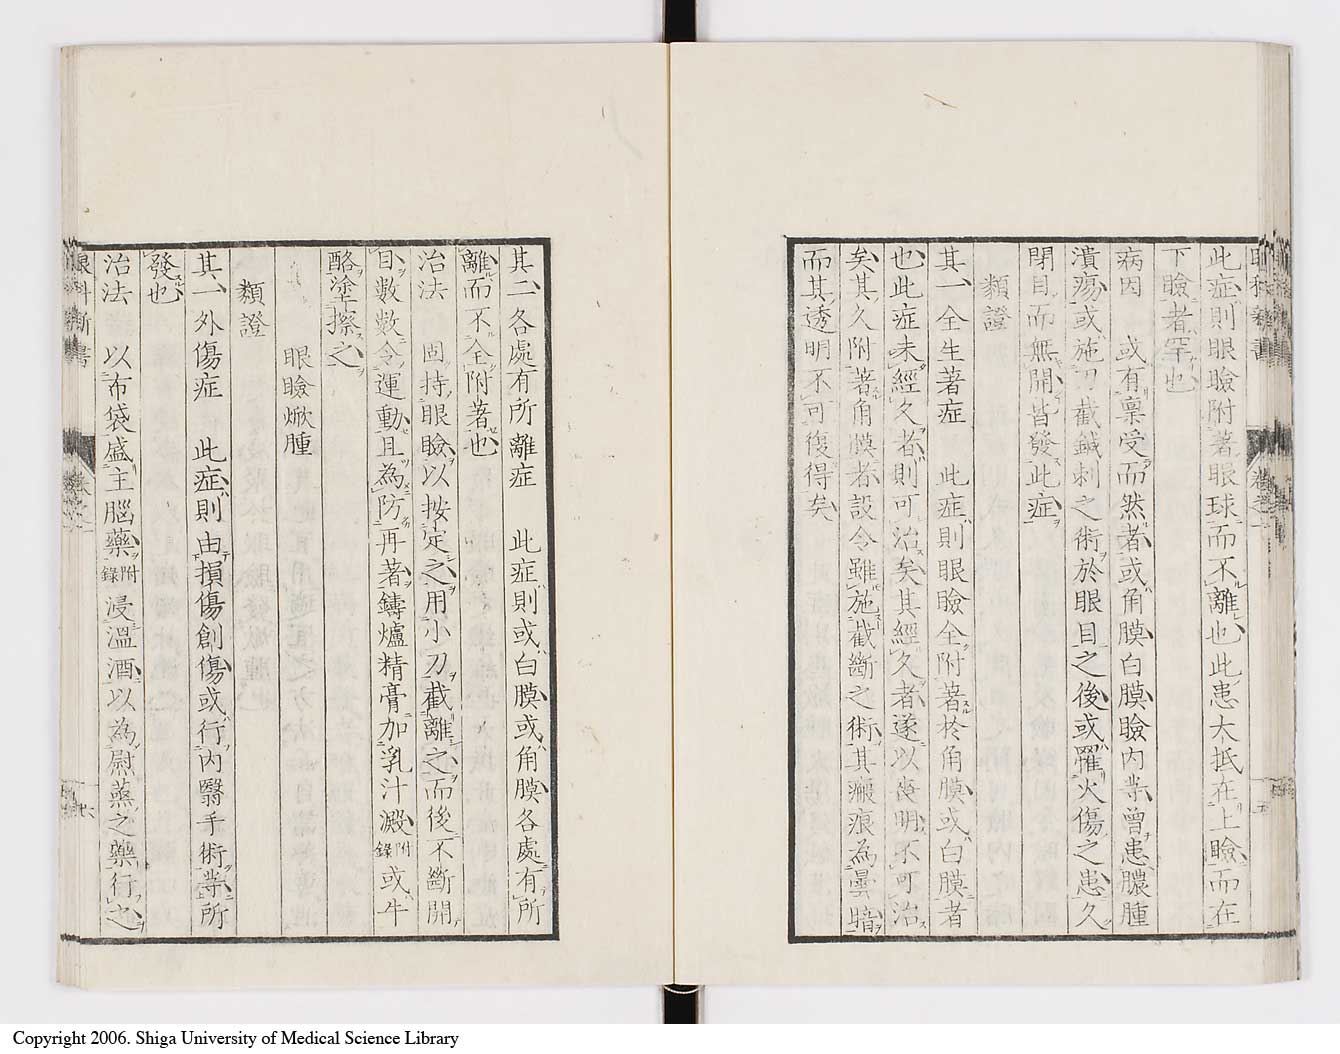 此症則眼瞼附著眼球而不離也此患大抵在上瞼而在
下瞼者罕也
病因 或有稟受而然者或角膜白膜瞼内業曽患膿腫
潰瘍或施刀截鍼刺之術於眼目之後或罹火傷之患久
閉目而無開皆發此症
類證
其一全生著症 此症則眼瞼全附著於角膜或白膜者
也此症未經久者則可治矣其經久者遂以喪明不可治
矣其久附著角膜者設令雖施截斷之術其瘢痕為曇暗
而其透明不可復得矣
其二各處有所離症 此症則或白膜或角膜各處有所
離而不全附著也
治法 固持眼瞼以按定之用小刀截離之而後不斷開
目數數令運動且為防再著鑄爐精膏加乳汁澱附錄或牛
酪塗擦之
眼瞼焮腫
類證
其一外傷症 此症則由損傷創傷或行内翳手術業所
發也
治法 以布袋盛主腦藥附錄浸溫酒以為熨蒸之藥行之
眼科新書
卷之一
Copyright 2006. Shiga University of Medical Science Library